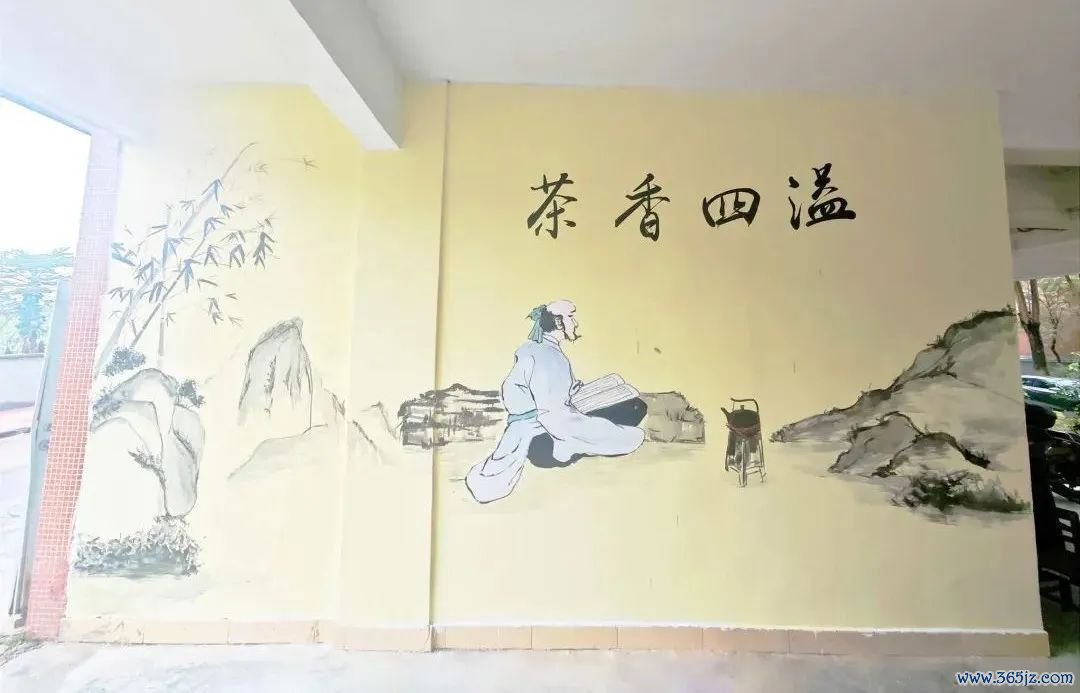 茶香四溢
www.365jz.com